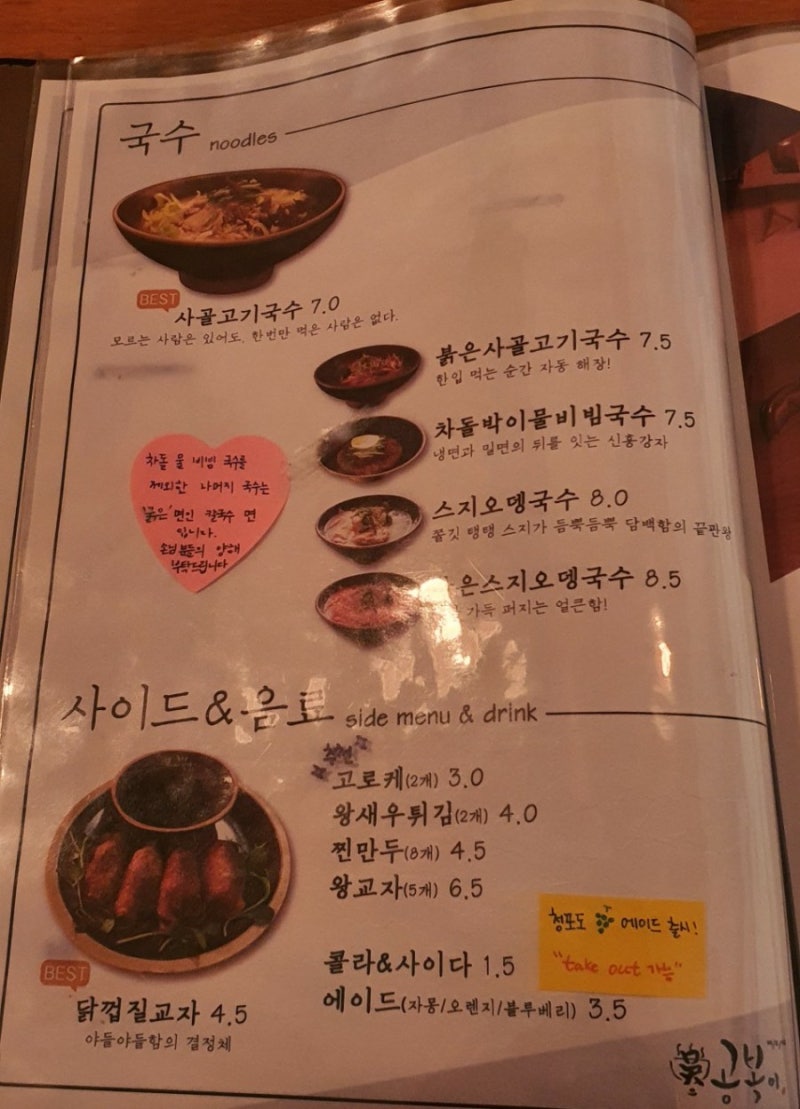 국수 noodles
BEST
사골고기국수 7.0
모르는 사람은 있어도, 한번만 먹은 사람은 없다.
붉은사골고기국수 7.5
한입 먹는 순간 자동 해장!
차돌박이물비빔국수 7.5
냉면과 밀면의 뒤를 잇는 신흥강자
차돌 물 비빔 국수를
제외한 나머지 국수는
'붉은'면인 칼국수 면
입니다.
손님분들의 양해
부탁드립니다
스지오뎅국수 8.0
쫄깃 탱탱 스지가 듬뿍듬뿍 담백함의 끝판왕
은스지오뎅국수 8.5
가득 퍼지는 얼큰함!
사이드&음료 side menu & drink
추천
고로케(2개) 3.0
왕새우튀김(2개) 4.0
찐만두(8개) 4.5
왕교자(5개) 6.5
BEST
닭껍질교자 4.5
야들야들함의 결정체
콜라&사이다 1.5
에이드(자몽/오렌지/블루베리) 3.5
청포도 에이드 출시!
"take out 가능"
공복이